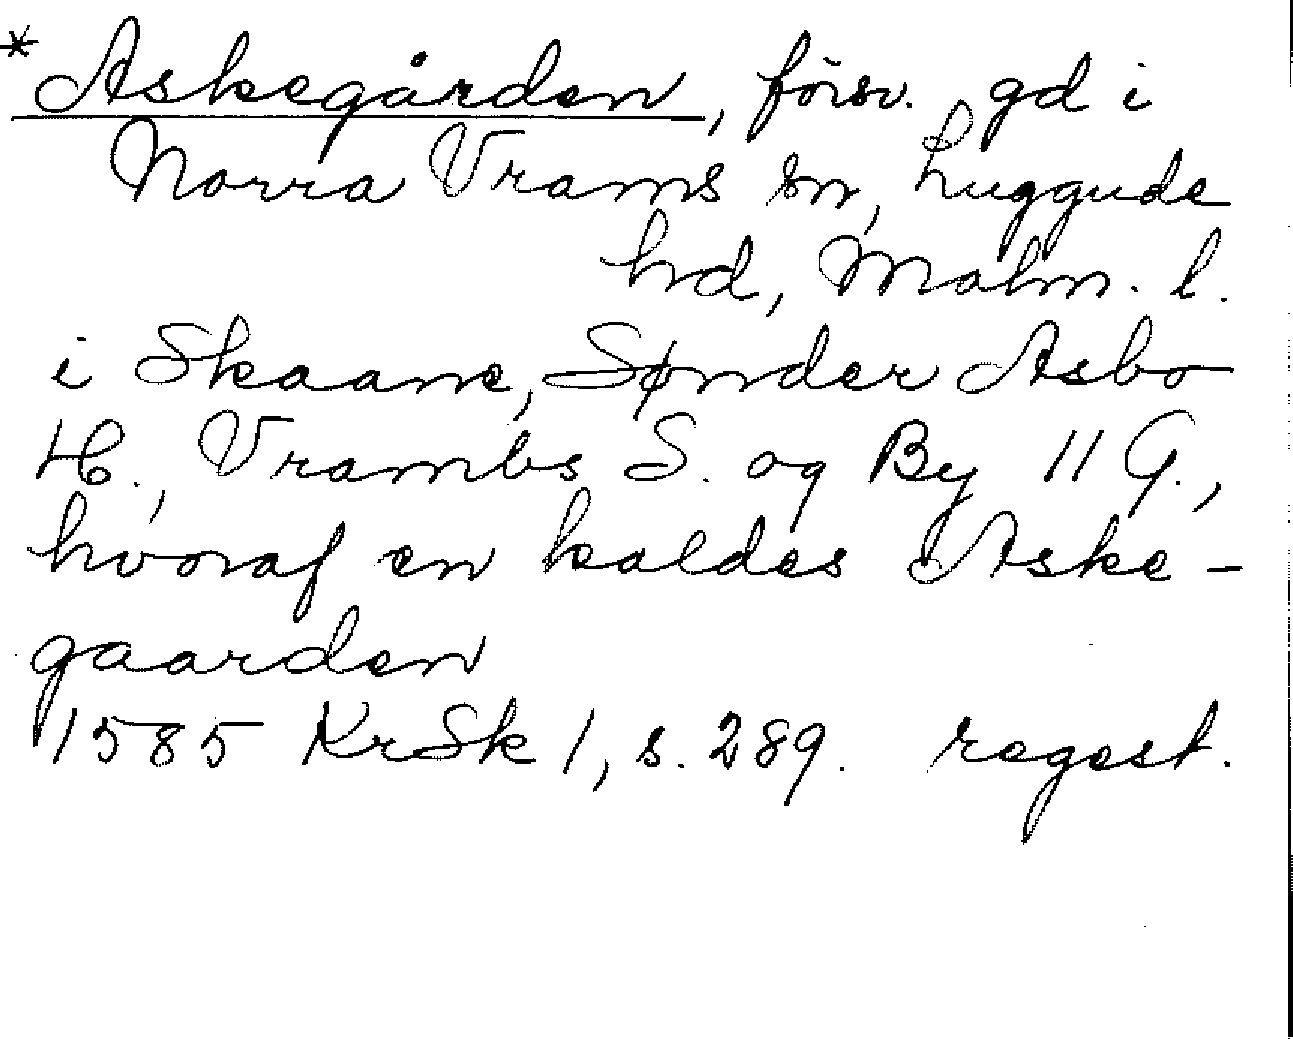 *Askegården, försv. gd i
Norra Vrams sn, Luggude
hd, Malm. l.
i Skaane, Sønder Asbo
H., Vrambs S. og By 11 G.,
hvoraf en kaldes Aske-
gaarden
1585 KrSk 1, s. 289. regest.